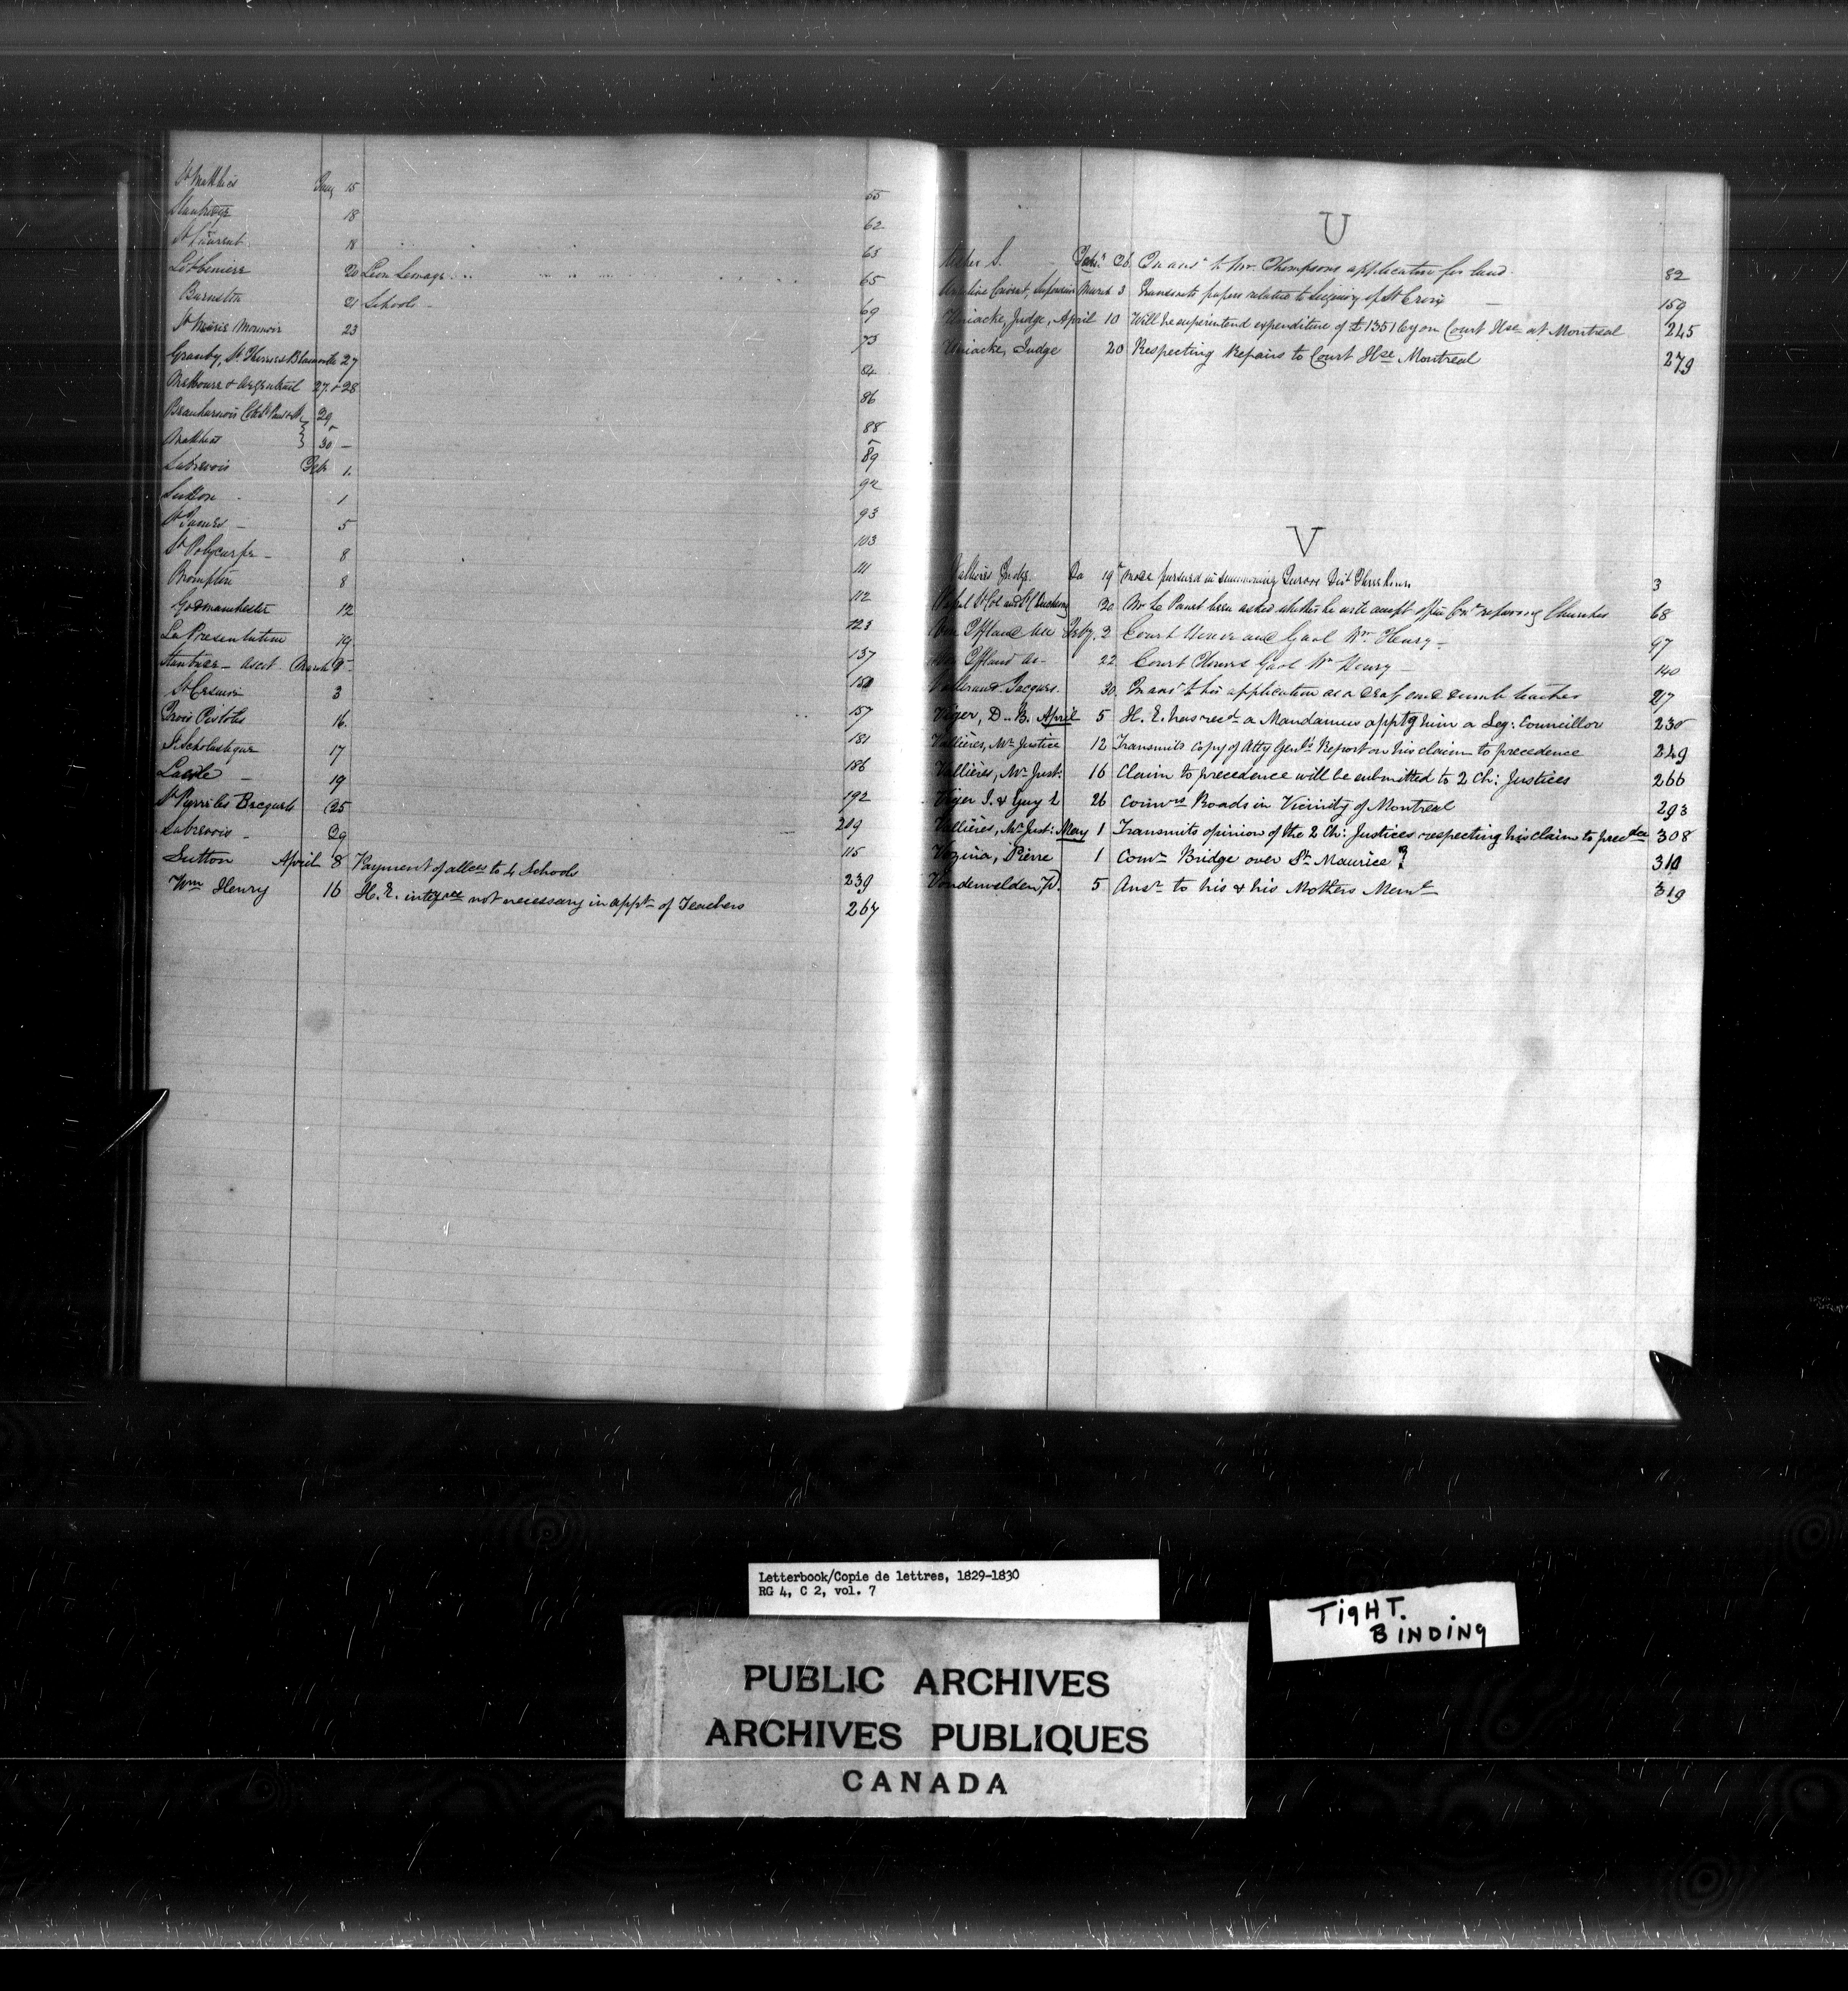 St Mathias Jany 15 55
Stanbridge 18 62
St Laurent 18 63
Lotbiniere 20 Leon Lemage 65
Barnston 21 Schools 69
St Marie Monnoir 23 73
Granby, St Therese Blainville 27 84
Melbourne & Argenteuil 27 & 28 86
Beauharnois 29 88
30 - 89
Sabrevois Feb 1. 92
Sutton 1 93
St James - 5 103
St Polycarpe - 8 111
Brompton 8 112
Godmanchester 12 123
La Presentation 19 137
Stanbridge - Ascot March 150
St Cesaire 3 157
Trois Pistoles 16. 181
St Scholastique 17 186
Lacole - 19 192
St Pierre les Becquets 25 219
Sabrevois - 29 115
Sutton April 8 Payment of allces to 4 Schools 239
Wm Henry 16 H. E. not necessary in appt of Teachers 267
U
S. 26 In ansr to Mr. Thompsons application for land. 82
Ursuline Convent, March 3 Transmits papers relative to Seigniory of St Croix - 159
Uniacke, Judge, April 10 Will he superintend expenditure of £1351 on Court Hse at Montreal 245
Uniacke, Judge 20 Respecting Repairs to Court Hse Montreal 279
V
Vallieres Judge. 19 Mode pursued in summoning Jurors Dist Three Rivers 3
30 Mr Le Panet been asked whether he will accept repairing Churches 68
Von Iffland Feby. 2 Court House and Gaol Wm Henry - 97
Von Iffland 22 Court House Gaol Wm Henry - 140
Jacques. 30. In ansr to his application as a deaf and dumb teacher 217
Viger, D. B. April 5 H. E. has recd a Mandamus apptg him a Leg: Councillor 230
Vallières, Mr Justice 12 Transmits copy of Atty Genl's Report on his claim to precedence 249
Vallières, Mr Just. 16 Claim to precedence will be submitted to 2 Ch: Justices 266
Viger J. & Guy L 26 Comrs Roads in Vicinity of Montreal 293
Vallières, Mr Just: May 1 Transmits opinion of the 2 Ch: Justices respecting his claim to precdce 308
Vezina, Pierre 1 Comr Bridge over St Maurice ? 310
Vondenvelden, W. 5 Ansr to his & his Mothers Meml 319
Letterbook/Copie de lettres, 1829-1830
RG 4, C 2, vol. 7
TIGHT.
BINDING
PUBLIC ARCHIVES
ARCHIVES PUBLIQUES
CANADA